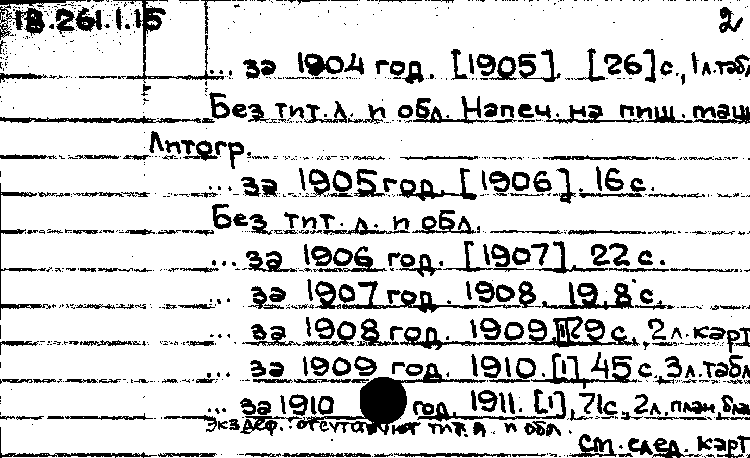 18.261.1.15 2
... за 1904 год. [1905]. [26] с., 1 л. табл
Без тит. л. и обл. Напеч. на пиш. маш
Литогр.
... за 1905 год. [1906]. 16 с.
Без тит. л. и обл.
... за 1906 год. [1907]. 22 с.
... за 1907 год. 1908. 19,8 с.
... за 1908 год. 1909. 29 с., 2 л. карт
... за 1909 год. 1910. [1], 45 с., 3 л. табл
... за 1910 год. 1911. [1], 71 с., 2 л. план,
Экз. деф.: отсутствуют тит. л. и обл.
См. след. карт